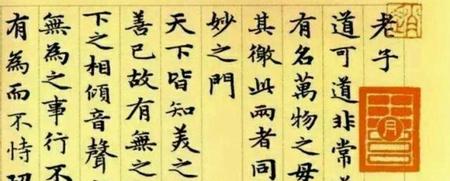 老子
道可道非常
有名萬物之母
其徼此兩者同
妙之門
天下皆知美之
善已故有無之
下之相傾音聲
無為之事行不
有為而不恃
月